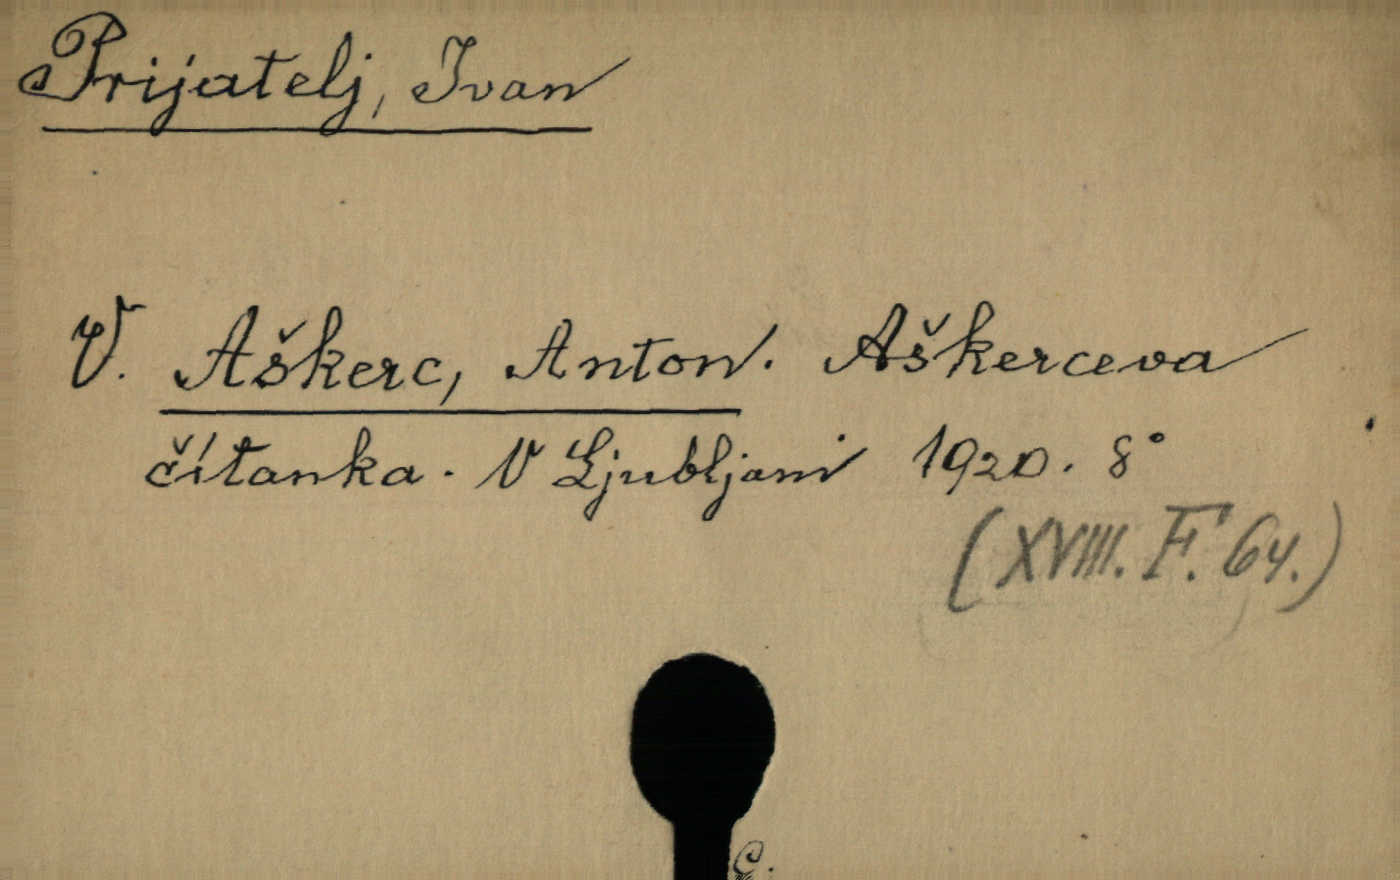 Prijatelj, Ivan
V. Aškerc, Anton. Aškerceva
čítanka. V Ljubljani 1920. 8°
(XVIII. F. 64.)